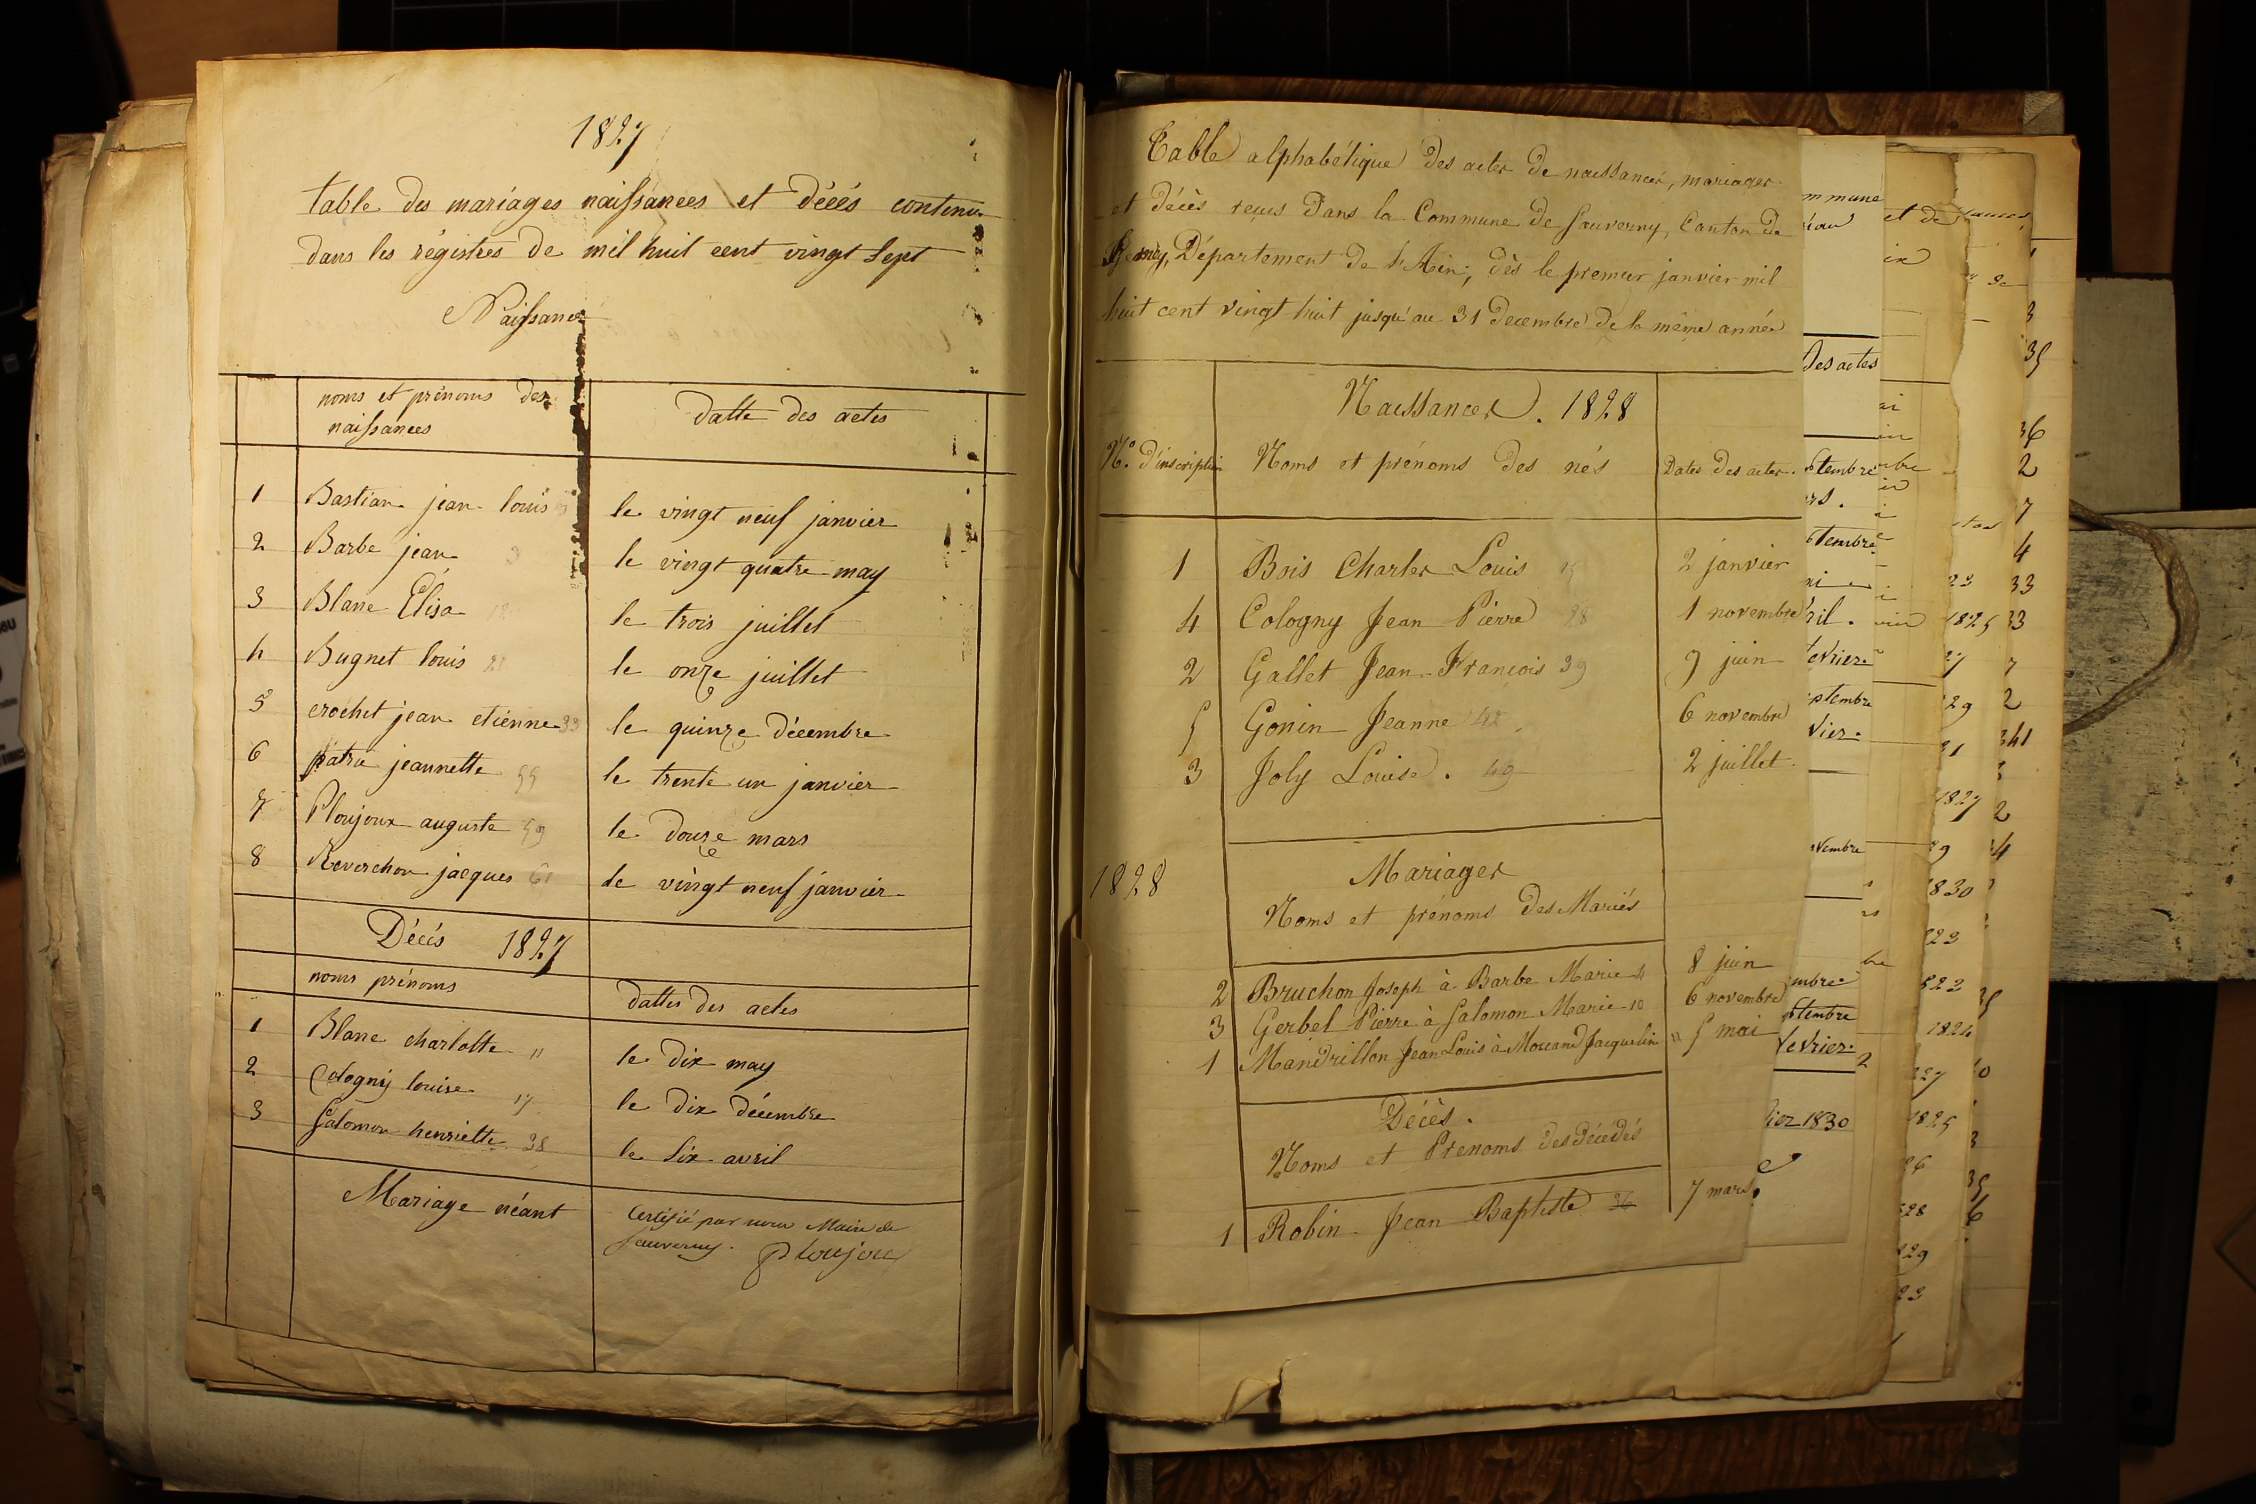 1827
table des mariages naissances et décés contenu
dans les régistres de mil huit cent vingt sept
Naissances
noms et prénoms des
naissances
datte des actes
1 Bastian jean louis le vingt neuf janvier
2 Barbe jean 3 le vingt quatre may
3 Blanc Élisa le trois juillet
4 Bugnet louis 21 le onze juillet
5 crochet jean etienne 33 le quinze décembre
6 patru jeannette 55 le trente un janvier
7 Ploujoux auguste 59 le douze mars
8 Reverchon jacques 61 le vingt neuf janvier
Décés 1827
noms prénoms
dattes des actes
1 Blanc charlotte 11 le dix may
2 Cologny louise 17 le dix décembre
3 Salomon henriette 38 le six avril
Mariage néant
Certifié par nous Maire de
Sauverny.
Ploujoux
Table alphabétique des actes de naissances, mariages
et décès reçus dans la Commune de Sauverny, Canton de
Département de l'Ain, dès le premier janvier mil
huit cent vingt huit jusqu'au 31 Decembre de la même année
Naissances. 1828
N.º d'inscription Noms et prénoms des nés Dates des actes.
1 Bois Charles Louis 15 2 janvier
4 Cologny Jean Pierre 28 1 novembre
2 Gallet Jean-François 39 9 juin
5 Gonin Jeanne 42 6 novembre
3 Joly Louise. 49 2 juillet.
1828
Mariages
Noms et prénoms des Mariés
2 Bruchon Joseph à Barbe Marie 4 8 juin
3 Gerbel Pierre à Salomon Marie 10 6 novembre
1 Mandrillon Jean Louis à Jacqueline 11 5 mai
Décès.
Noms et Prenoms des Décedés
1 Robin Jean Baptiste 36 7 mars.
mmune
des actes
ptembre
rs.
ptembre
ril.
fevrier
ptembre
vier.
vembre
embre
ptembre
fevrier.
2
1830
et de
1825
27
29
31
1827
29
1830
23
1824
1825
26
29
23
3
35
36
2
7
4
33
33
7
2
341
2